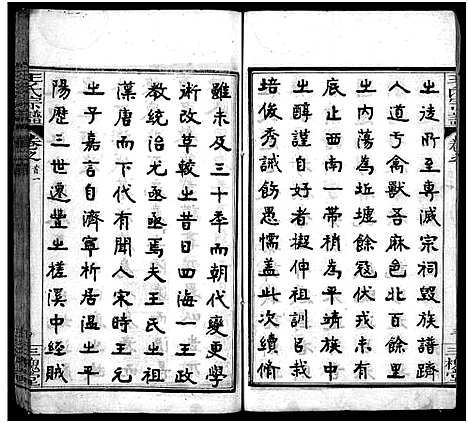 之徒所至專滅宗祠毀族譜躋
人道于禽獸吾麻邑北百餘里
之內蕩為坵墟餘冠伏戎未有
底止西南一帶稍為平靖族中
之醇謹自好者擬伸祖訓以裁
培俊秀箴飭愚懦蓋此次續脩
雖未及三十年而朝代變更學
術改革較之四海一王政
教統治尤亟亟焉夫王氏之祖
漢唐以前代有聞人宋時王元
之子嘉言自濟寧析居溫之平
陽歷三世遷豐之槎溪中經賊
王氏宗譜
卷之首一
三槐堂